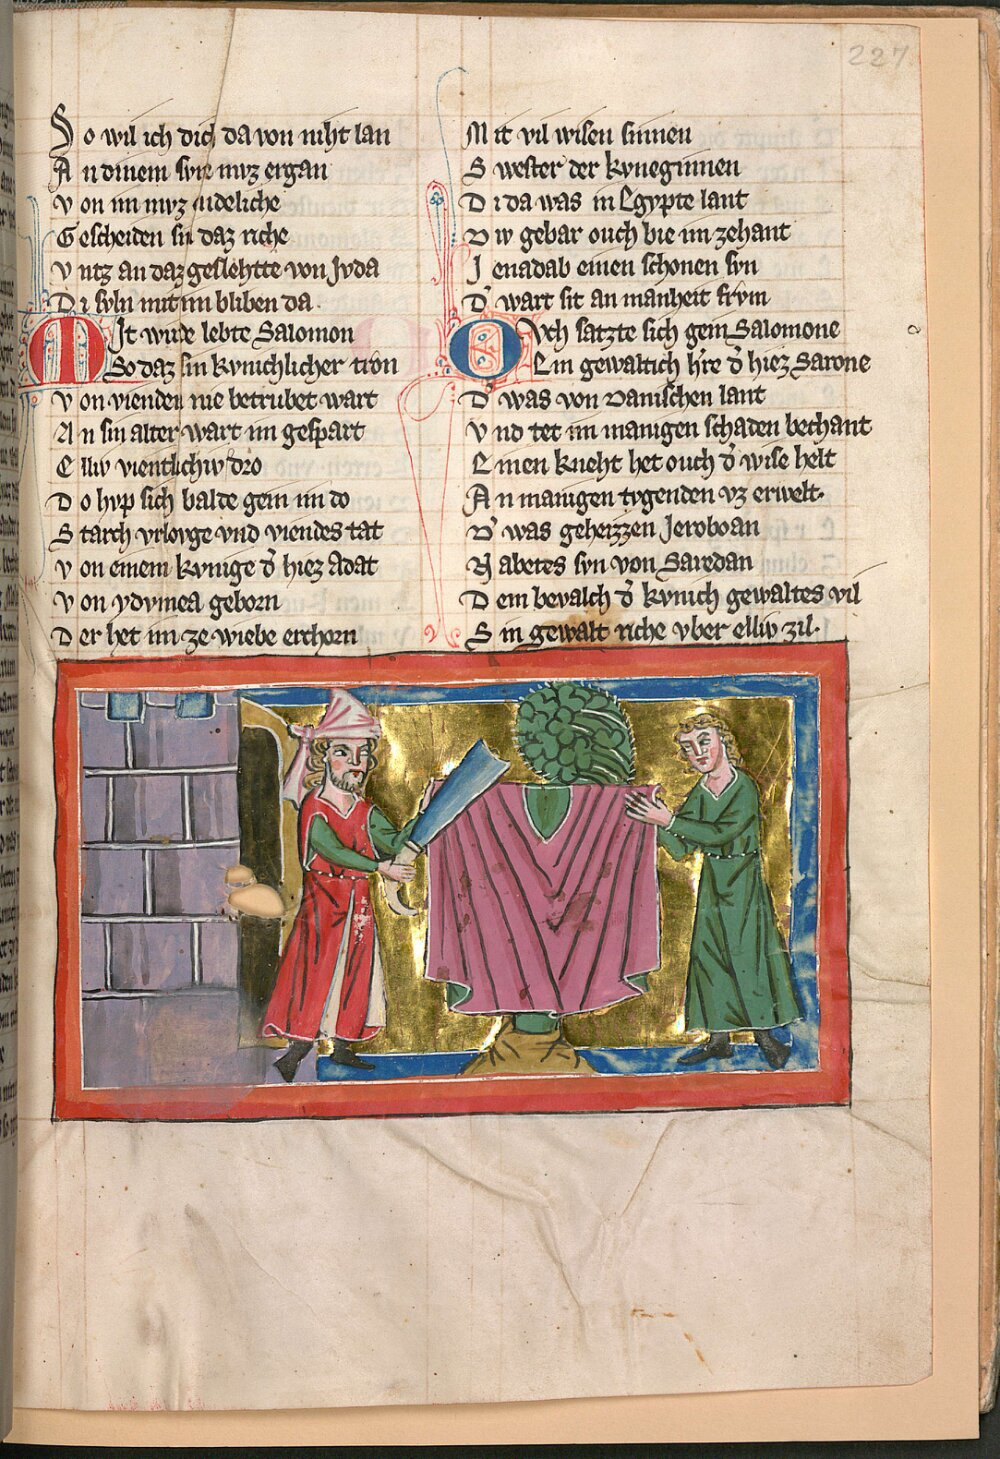 227
So wil ich dich da von niht lan
An dinem svne mvz ergan
Von im mvz
Gescheiden sin daz riche
Vntz an daz geslehtte von Jvda
Di svln mit im bliben da
MIt wide lebte Salomon
So daz sin kvnichlicher tron
Von vienden nie betrubet wart
An sin alter wart im gespart
Elliv vientlichiv dro
Do hvp sich balde gein im do
Starch vrlovge vnd viendes tat
Von einem kvnige d' hiez Adat
Von ydvmea geborn
Der het im ze wiebe erchorn
Mit vil wisen sinnen
Swester der kvneginnen
Di da was in Egypte lant
Div gebar ouch bie im zehant
Jenadab einen schonen svn
D' wart sit an manheit frvm
OVch satzte sich gein Salomone
Ein gewaltich h're d' hiez Sarone
D' was von Damschen lant
Vnd tet im manigen schaden bechant
Einen kneht het ouch d' wise helt
An manigen tvgenden vz erwelt.
D' was geheizzen Jeroboan
Nabetes svn von Saredan
Dem bevalch d' kvnich gewaltes vil
Sin gewalt riche vber elliv zil.